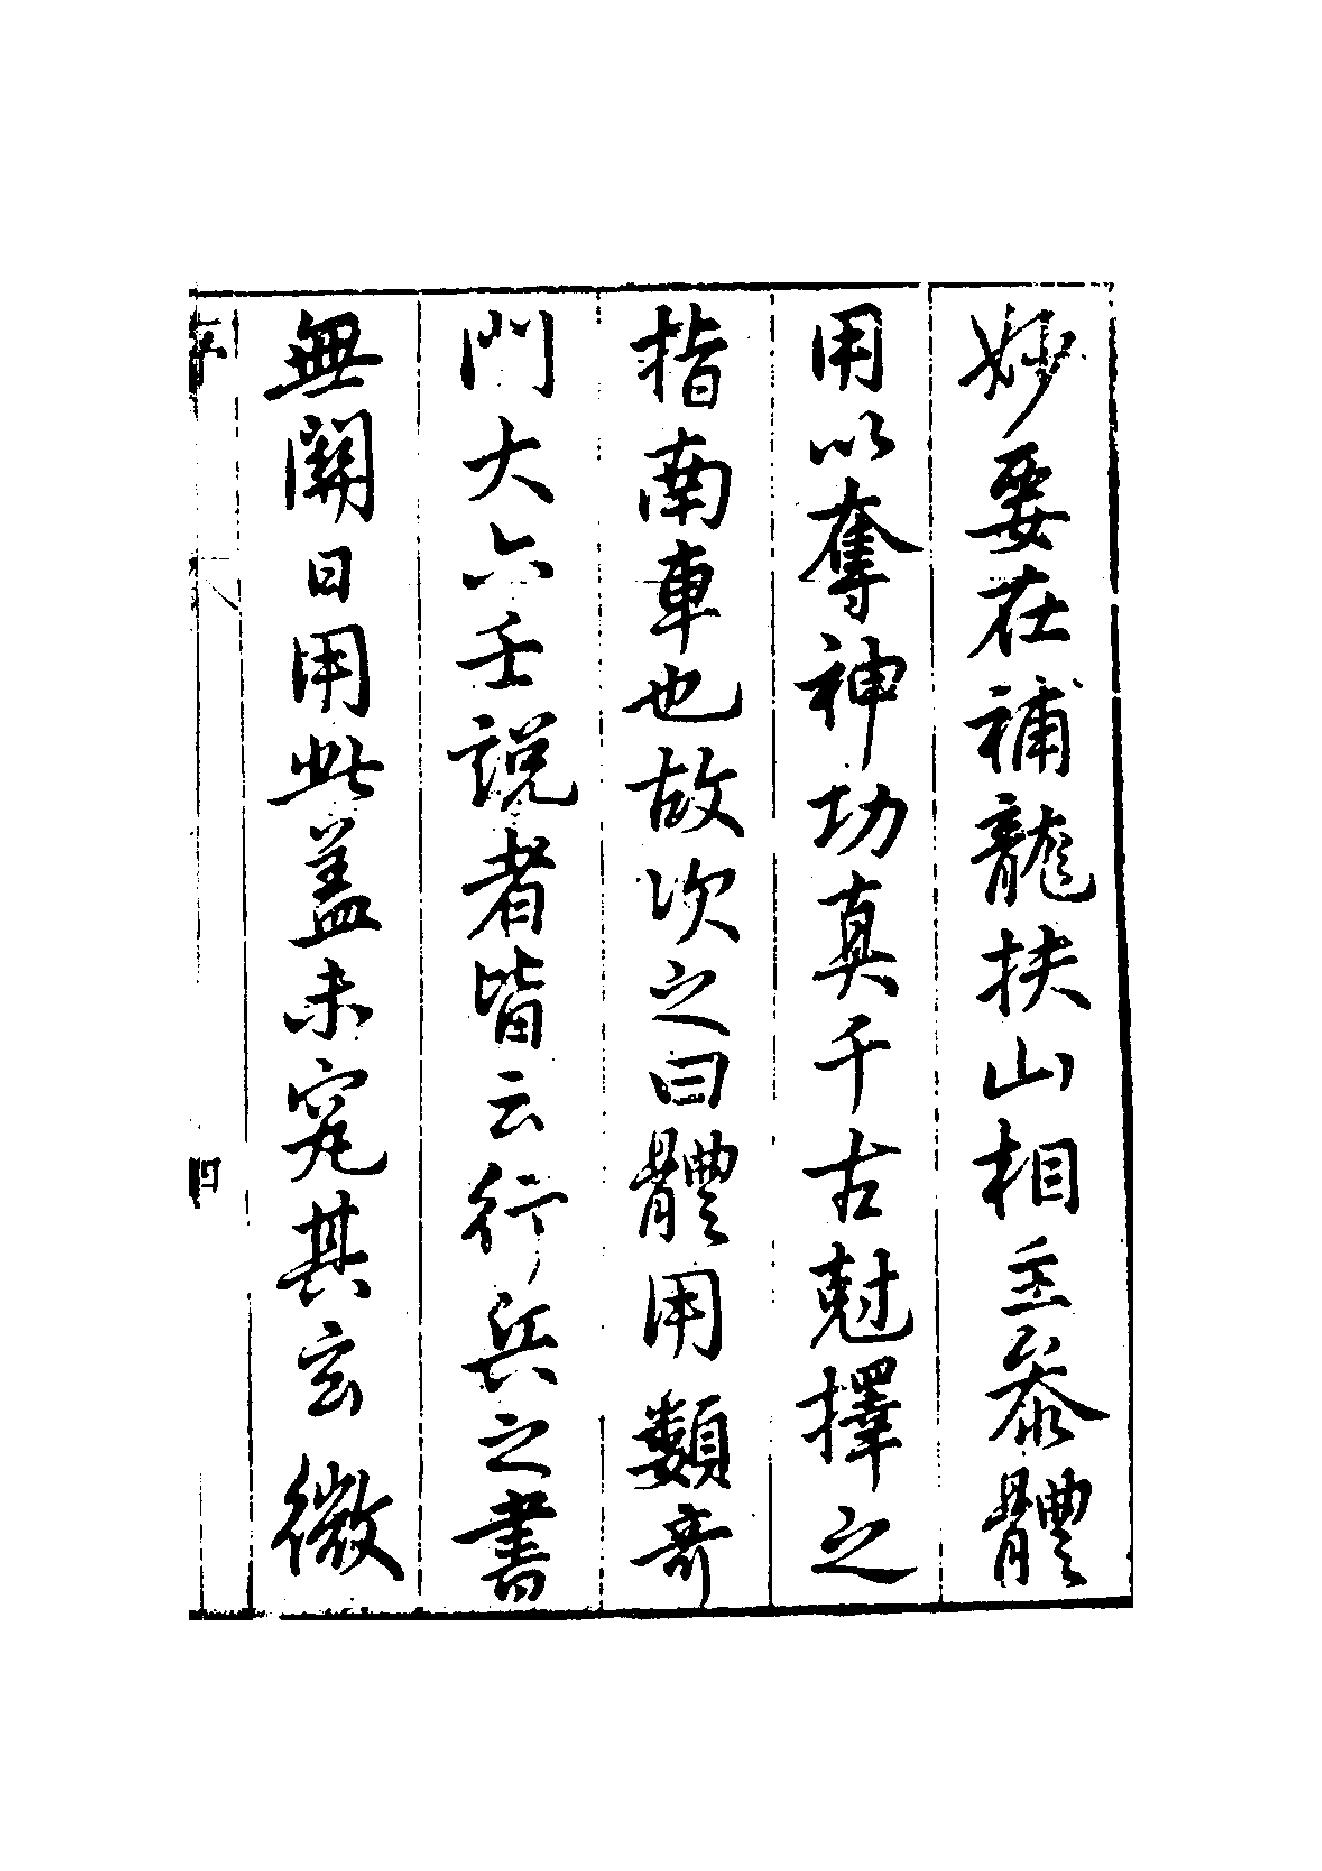 妙要在補龍扶山相主叅體
用以奪神功真千古尅擇之
指南車也故次之曰體用類竒
門大六壬說者皆云行兵之書
無關日用此蓋未究其玄微
序
四